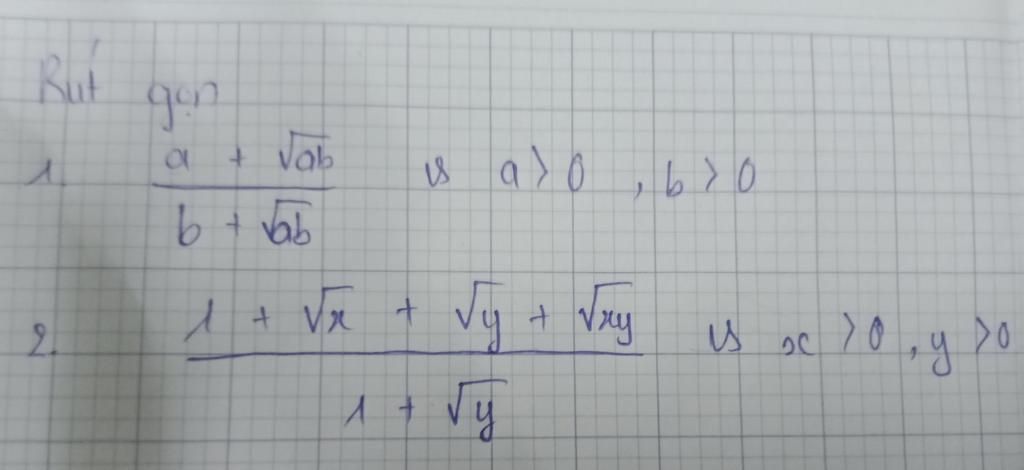 Rút gọn
1. \frac{a + \sqrt{ab}}{b + \sqrt{ab}} vs a > 0 , b > 0
2. \frac{1 + \sqrt{x} + \sqrt{y} + \sqrt{xy}}{1 + \sqrt{y}} vs x > 0 , y > 0